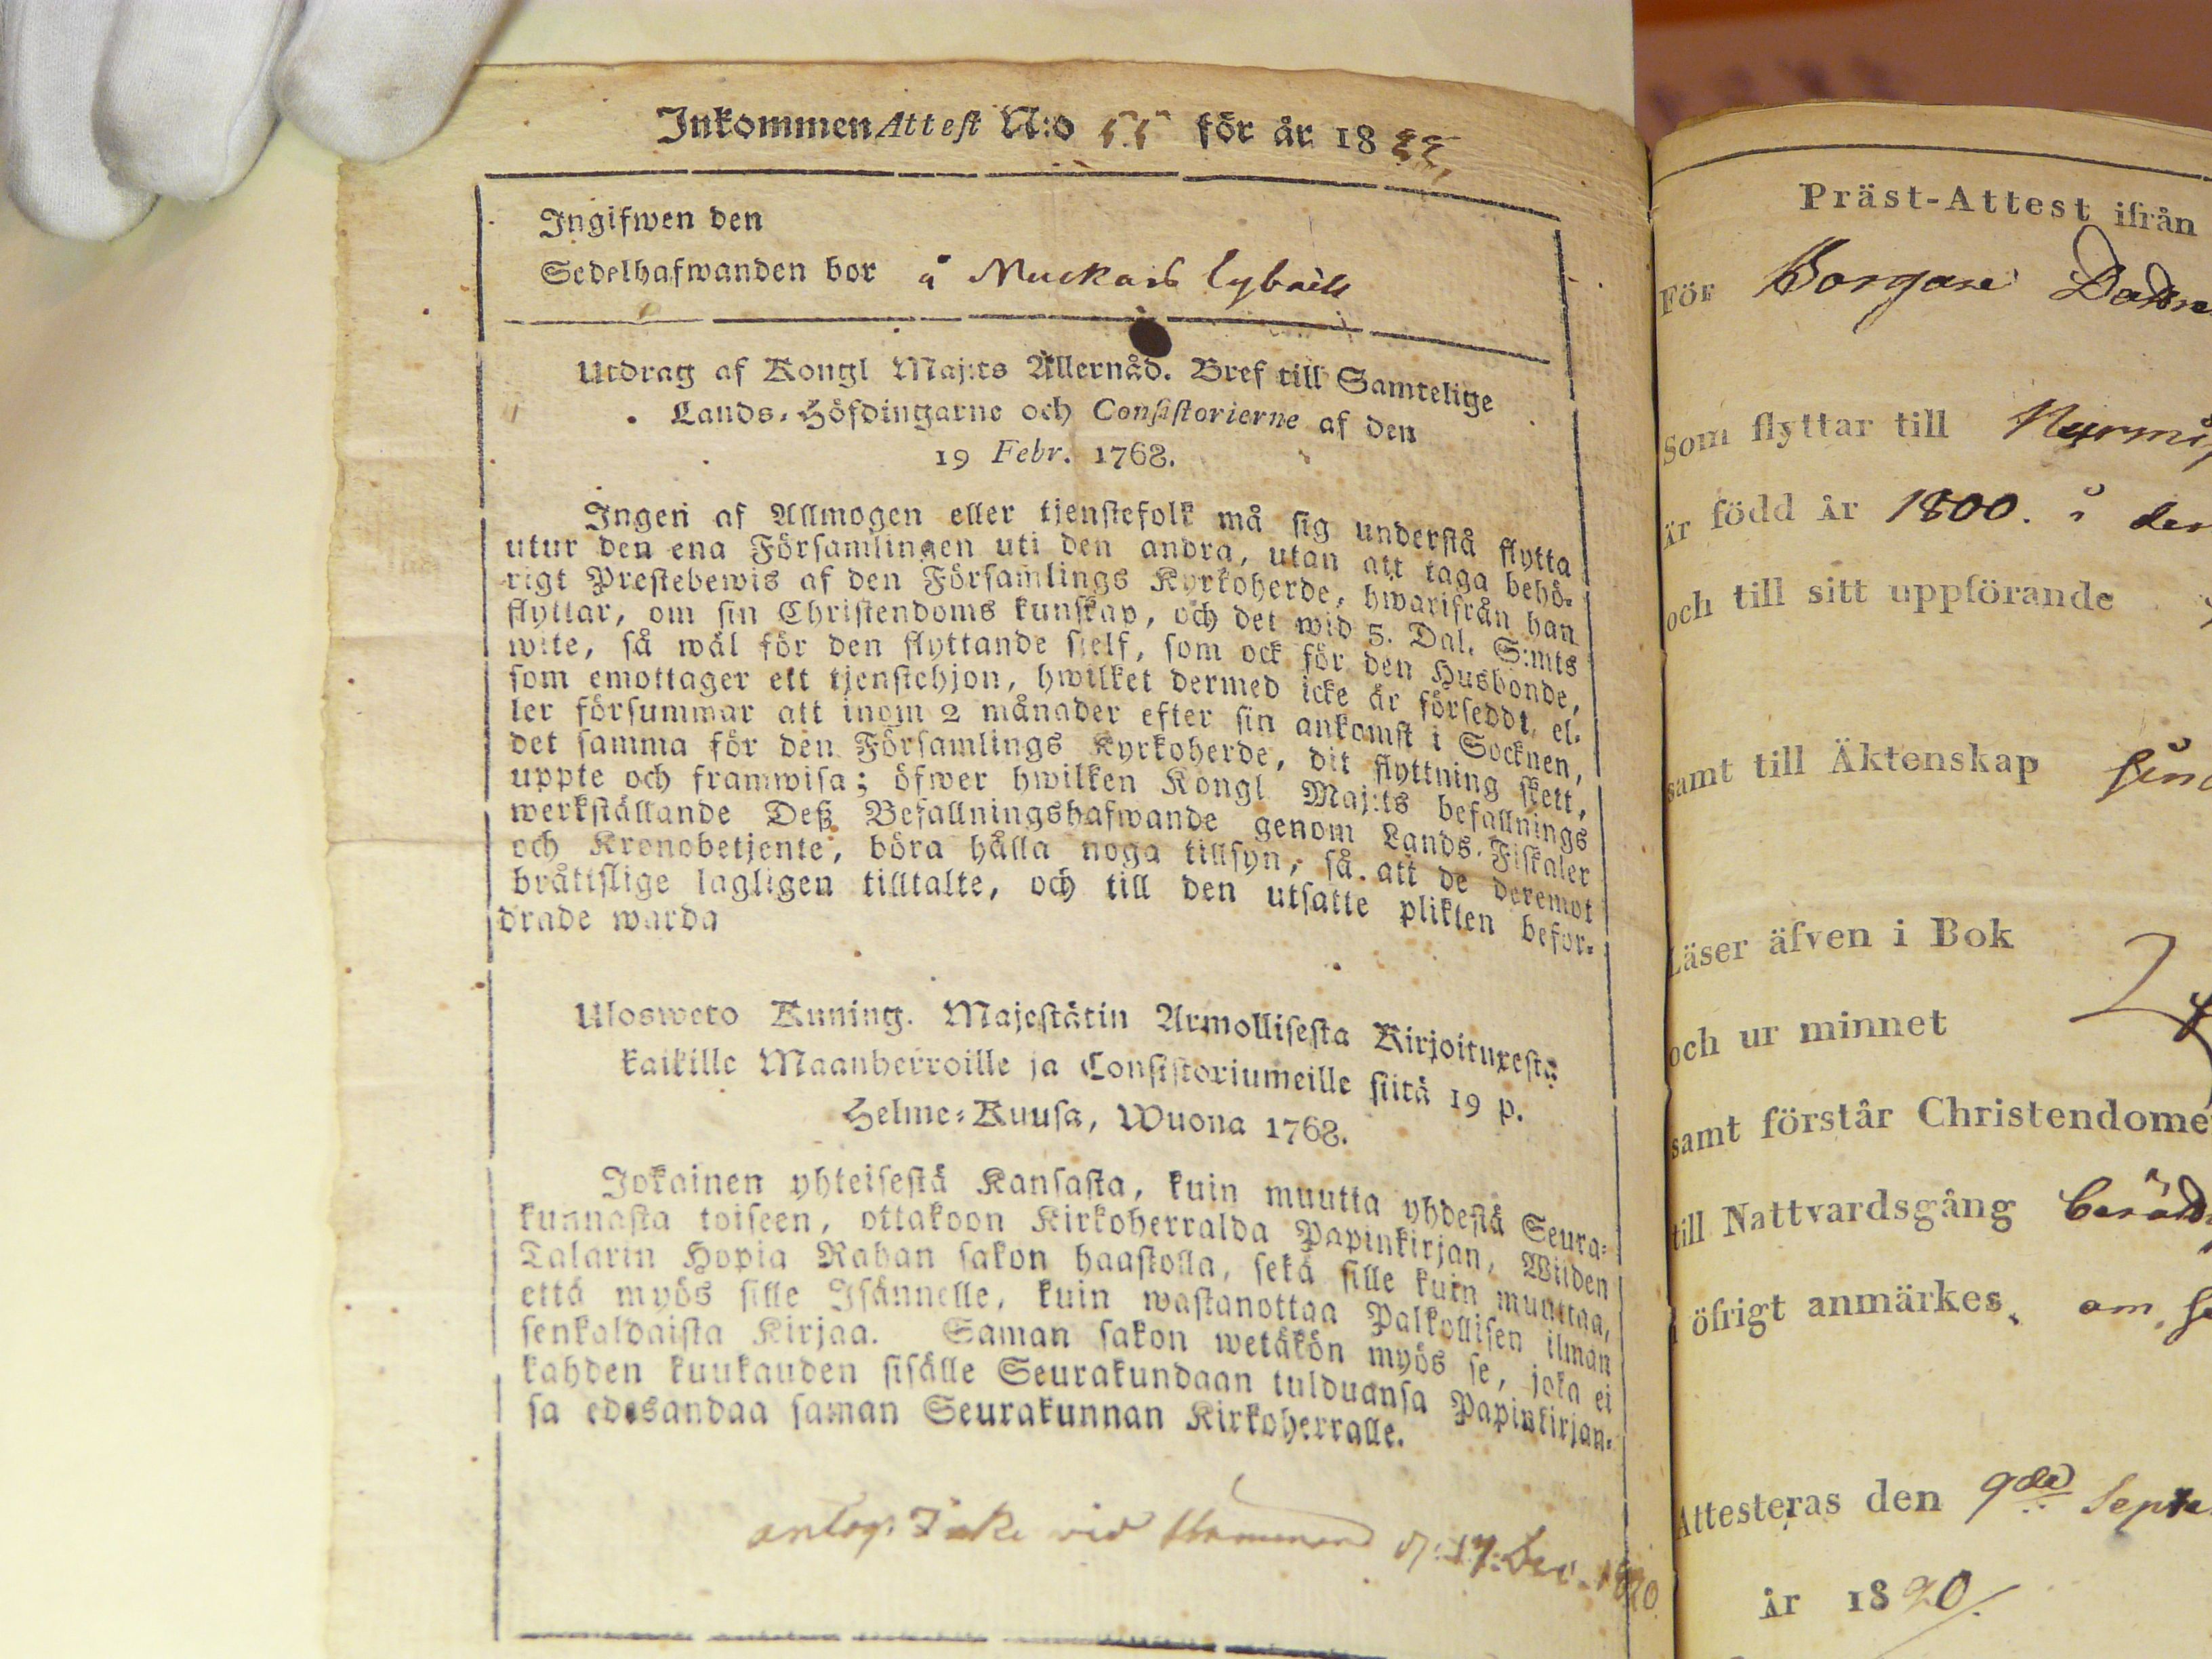 Inkommen Attest N:o 55 för år 18
Ingifwen den
Sedelhafwanden bor å
Utdrag af Kongl Maj:ts Allernåd. Bref till Samtelige
Lands-Höfdingarne och Consistorierne af den
19 Febr. 1768.
Ingen af Allmogen eller tjenstefolk må sig understå flytta
utur den ena Församlingen uti den andra, utan att taga behö-
rigt Prestebewis af den Församlings Kyrkoherde, hwarifrån han
flyttar, om sin Christendoms kunskap, och det wid 5. Dal. S:mts
wite, så wäl för den flyttande sjelf, som ock för den Husbonde,
som emottager ett tjenstehjon, hwilket dermed icke är förseddt, el-
ler försummar att inom 2 månader efter sin ankomst i Socknen,
det samma för den Församlings Kyrkoherde, dit flyttning skett,
uppte och framwisa; öfwer hwilken Kongl Maj:ts befallnings
werkställande Deß Befallningshafwande genom Lands-Fiskaler
och Kronobetjente, böra hålla noga tillsyn, så att de deremot
bråttslige lagligen tilltalte, och till den utsatte plikten befor-
drade warda
Ulosweto Kuning. Majestätin Armollisesta Kirjoituxesta
kaikille Maanherroille ja Consistoriumeille siitä 19 p.
Helme-Kuusa, Wuona 1768.
Jokainen yhteisestä Kansasta, kuin muutta yhdestä Seura-
kunnasta toiseen, ottakoon Kirkoherralda Papinkirjan, Wiiden
Talarin Hopia Rahan sakon haastolla, sekä sille kuin muuttaa,
että myös sille Isännelle, kuin wastanottaa Palkollisen ilman
senkaldaista Kirjaa. Saman sakon wetäkön myös se, joka ei
kahden kuukauden sisälle Seurakundaan tulduansa Papinkirjan-
sa edesandaa saman Seurakunnan Kirkoherralle.
vid d. 17: Dec. 1820
Präst-Attest ifrån
För Borgare
Som flyttar till
är född år 1800. i
och till sitt uppförande
samt till Äktenskap
Läser äfven i Bok
och ur minnet
samt förstår Christendome
till Nattvardsgång
i öfrigt anmärkes, om
Attesteras den 9de Septe
år 1820.